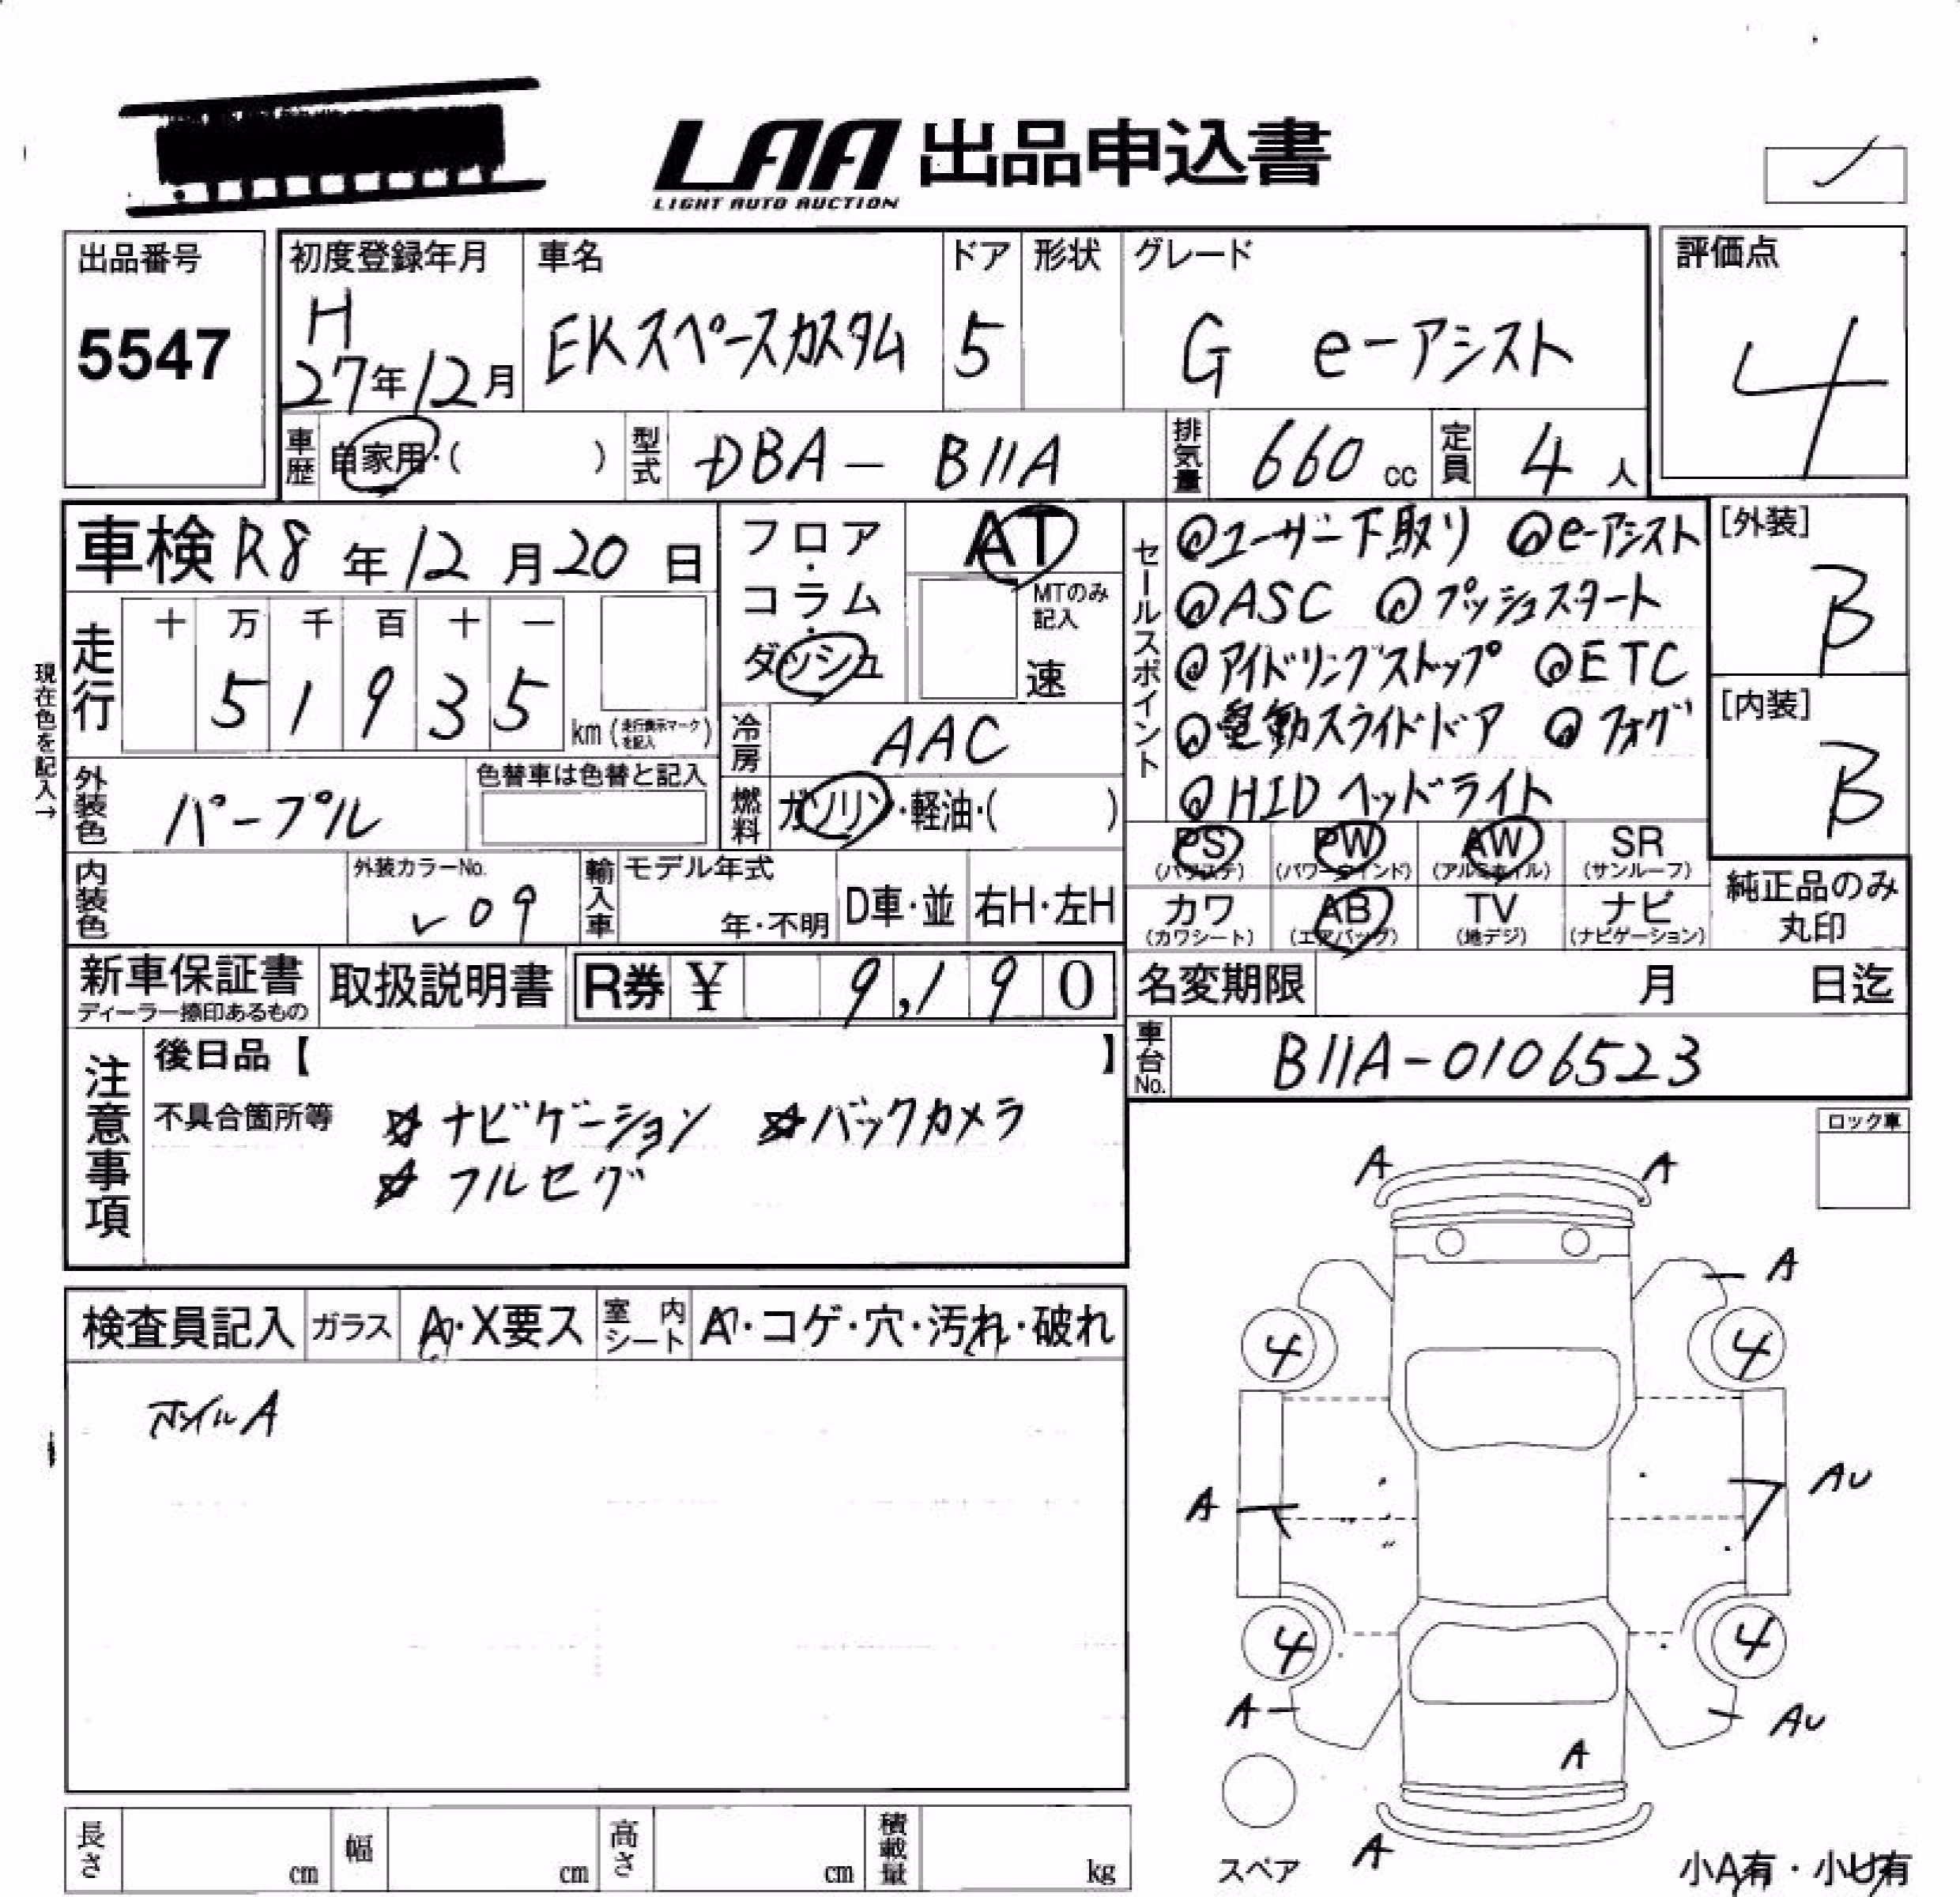 LAA 出品申込書
LIGHT AUTO AUCTION
出品番号
5547
初度登録年月
H
27年12月
車名
EKスペースカスタム
ドア
5
形状
グレード
G e-アシスト
評価点
4
車歴 自家用・( )
型式 DBA-B11A
排気量 660 cc
定員 4 人
車検 R8年12月20日
フロア・コラム・ダッシュ
AT
MTのみ記入
速
セールスポイント
@ユーザー下取り @e-アシスト
@ASC @プッシュスタート
@アイドリングストップ @ETC
@電動スライドドア @フォグ
@HIDヘッドライト
[外装]
B
[内装]
B
現在色を記入→
走行
十 万 千 百 十 一
5 1 9 3 5
km(走行表示マークを記入)
冷房 AAC
外装色 パープル
色替車は色替と記入
燃料 ガソリン・軽油・( )
PS (パワステ)
PW (パワーウインド)
AW (アルミホイル)
SR (サンルーフ)
内装色
外装カラーNo.
V09
輸入車
モデル年式
年・不明
D車・並
右H・左H
カワ (カワシート)
AB (エアバッグ)
TV (地デジ)
ナビ (ナビゲーション)
純正品のみ丸印
新車保証書
ディーラー捺印あるもの
取扱説明書
R券 ¥ 9,190
名変期限 月 日迄
車台No. B11A-0106523
注意事項
後日品【 】
不具合箇所等 ☆ナビゲーション ☆バックカメラ
☆フルセグ
ロック車
検査員記入
ガラス A・X要ス
室内シート A・コゲ・穴・汚れ・破れ
ホイルA
A A
A
4 4
A AU
4 4
A AU
A
A
スペア
小A有・小U有
長さ cm
幅 cm
高さ cm
積載量 kg